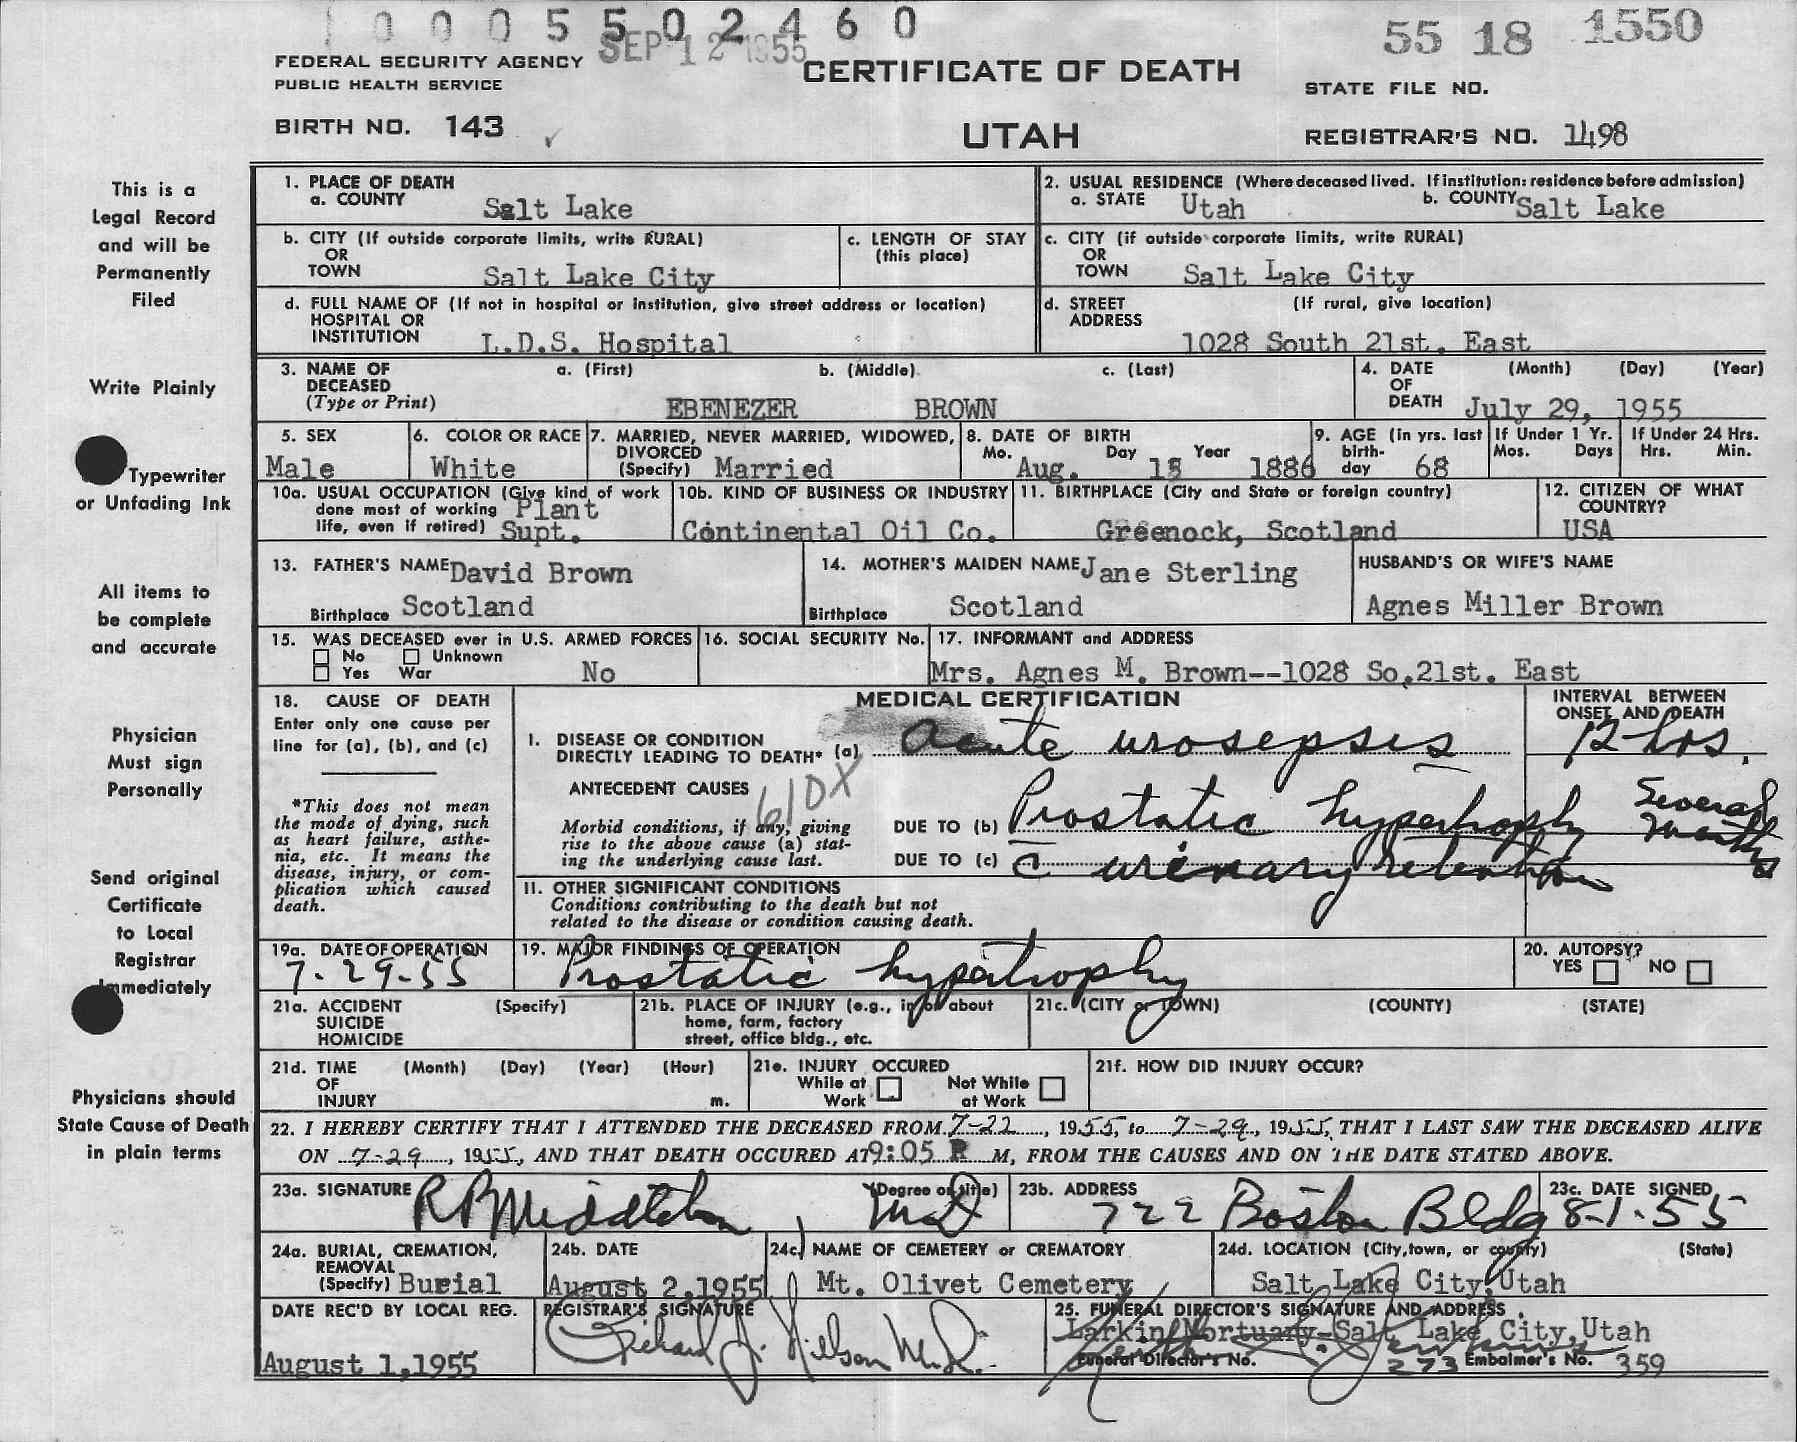 1 0 0 0 5 5 0 2 4 6 0
SEP 12 1955
55 18 1550
FEDERAL SECURITY AGENCY
PUBLIC HEALTH SERVICE
CERTIFICATE OF DEATH
STATE FILE NO.
BIRTH NO. 143
UTAH
REGISTRAR'S NO. 1498
This is a
Legal Record
and will be
Permanently
Filed
Write Plainly
Typewriter
or Unfading Ink
All items to
be complete
and accurate
Physician
Must sign
Personally
Send original
Certificate
to Local
Registrar
Immediately
Physicians should
State Cause of Death
in plain terms
1. PLACE OF DEATH
a. COUNTY Salt Lake
2. USUAL RESIDENCE (Where deceased lived. If institution: residence before admission)
a. STATE Utah b. COUNTY Salt Lake
b. CITY (If outside corporate limits, write RURAL)
OR
TOWN Salt Lake City
c. LENGTH OF STAY
(this place)
c. CITY (if outside corporate limits, write RURAL)
OR
TOWN Salt Lake City
d. FULL NAME OF (If not in hospital or institution, give street address or location)
HOSPITAL OR
INSTITUTION L.D.S. Hospital
d. STREET (If rural, give location)
ADDRESS
1028 South 21st. East
3. NAME OF a. (First) b. (Middle) c. (Last)
DECEASED
(Type or Print) EBENEZER BROWN
4. DATE (Month) (Day) (Year)
OF
DEATH July 29, 1955
5. SEX
Male
6. COLOR OR RACE
White
7. MARRIED, NEVER MARRIED, WIDOWED,
DIVORCED
(Specify) Married
8. DATE OF BIRTH
Mo. Day Year
Aug. 15 1886
9. AGE (in yrs. last
birth-
day 68
If Under 1 Yr.
Mos. Days
If Under 24 Hrs.
Hrs. Min.
10a. USUAL OCCUPATION (Give kind of work
done most of working Plant
life, even if retired) Supt.
10b. KIND OF BUSINESS OR INDUSTRY
Continental Oil Co.
11. BIRTHPLACE (City and State or foreign country)
Greenock, Scotland
12. CITIZEN OF WHAT
COUNTRY?
USA
13. FATHER'S NAME David Brown
Birthplace Scotland
14. MOTHER'S MAIDEN NAME Jane Sterling
Birthplace Scotland
HUSBAND'S OR WIFE'S NAME
Agnes Miller Brown
15. WAS DECEASED ever in U.S. ARMED FORCES
No Unknown
Yes War No
16. SOCIAL SECURITY No.
17. INFORMANT and ADDRESS
Mrs. Agnes M. Brown--1028 So.21st. East
18. CAUSE OF DEATH
Enter only one cause per
line for (a), (b), and (c)
*This does not mean
the mode of dying, such
as heart failure, asthe-
nia, etc. It means the
disease, injury, or com-
plication which caused
death.
MEDICAL CERTIFICATION
INTERVAL BETWEEN
ONSET AND DEATH
I. DISEASE OR CONDITION
DIRECTLY LEADING TO DEATH* (a) Acute urosepsis 12 hrs.
ANTECEDENT CAUSES 610X
Morbid conditions, if any, giving
rise to the above cause (a) stat-
ing the underlying cause last.
DUE TO (b) Prostatic hypertrophy Several
months
DUE TO (c) c̄ urinary retention
II. OTHER SIGNIFICANT CONDITIONS
Conditions contributing to the death but not
related to the disease or condition causing death.
19a. DATE OF OPERATION
7-29-55
19. MAJOR FINDINGS OF OPERATION
Prostatic hypertrophy
20. AUTOPSY?
YES NO
21a. ACCIDENT (Specify)
SUICIDE
HOMICIDE
21b. PLACE OF INJURY (e.g., in or about
home, farm, factory
street, office bldg., etc.
21c. (CITY or TOWN) (COUNTY) (STATE)
21d. TIME (Month) (Day) (Year) (Hour)
OF
INJURY m.
21e. INJURY OCCURED
While at Not While
Work at Work
21f. HOW DID INJURY OCCUR?
22. I HEREBY CERTIFY THAT I ATTENDED THE DECEASED FROM 7-22, 1955, to 7-29, 1955, THAT I LAST SAW THE DECEASED ALIVE
ON 7-29, 1955, AND THAT DEATH OCCURED AT 9:05 P M, FROM THE CAUSES AND ON THE DATE STATED ABOVE.
23a. SIGNATURE (Degree or title)
R B Middleton, M D
23b. ADDRESS
722 Boston Bldg
23c. DATE SIGNED
8-1-55
24a. BURIAL, CREMATION,
REMOVAL
(Specify) Burial
24b. DATE
August 2,1955
24c. NAME OF CEMETERY or CREMATORY
Mt. Olivet Cemetery
24d. LOCATION (City, town, or county) (State)
Salt Lake City, Utah
DATE REC'D BY LOCAL REG.
August 1,1955
REGISTRAR'S SIGNATURE
Richard J. Nilson M.D.
25. FUNERAL DIRECTOR'S SIGNATURE AND ADDRESS
Larkin Mortuary-Salt Lake City, Utah
Funeral Director's No. 273 Embalmer's No. 359